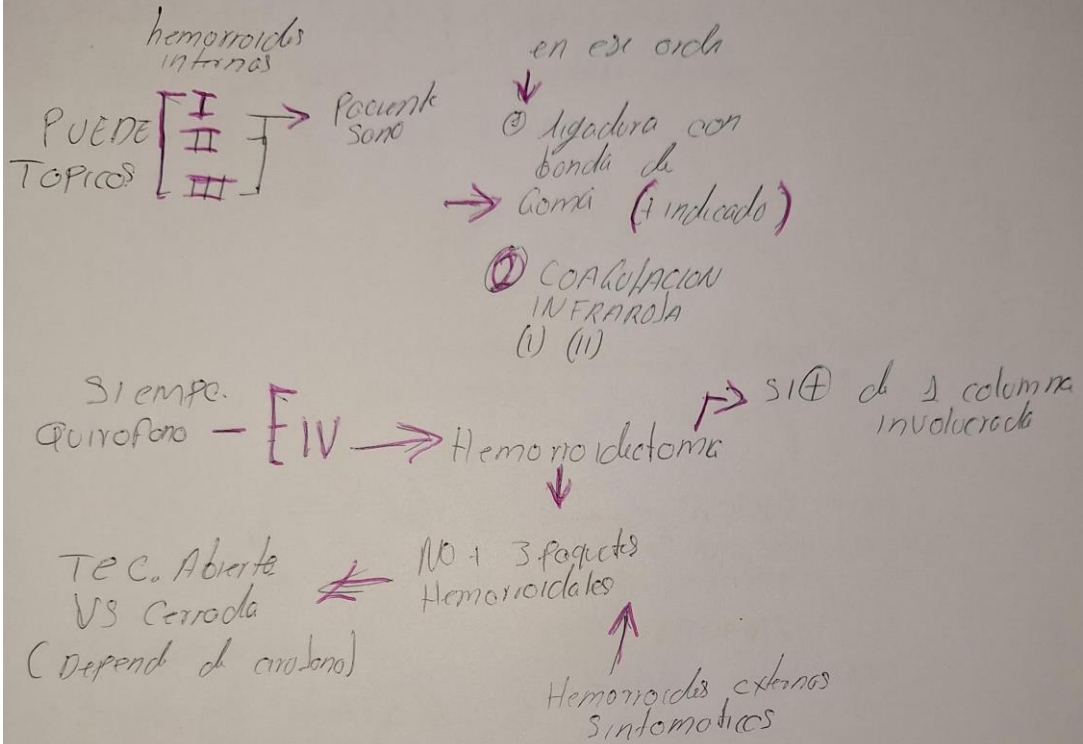 hemorroides
internas
PUEDE
TOPICOS
I
II
III
Paciente
Sano
en ese orden
ligadura con
banda de
Goma (+ indicado)
② COAGULACION
INFRAROJA
(I) (II)
Siempe.
Quirofono — IV
Hemorroidectoma
SI ⊕ de 1 columna
involucrada
NO + 3 paquetes
Hemorroidales
Tec. Abierta
VS Cerrada
(Depend d cirujano)
Hemorroides externas
Sintomaticas